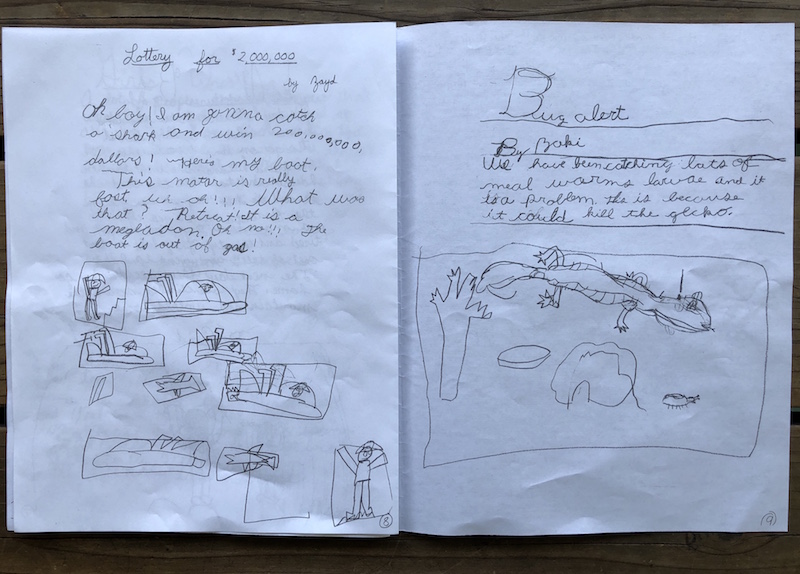 Lottery for $2,000,000
by Zayd
Oh boy! I am gonna catch
a shark and win 200,000,000,
dollars! Here's my boat.
This motar is really
fast uh oh!!! What was
that? Retreat! It is a
megladon. Oh no!!! The
boat is out of gas!
8
Bug alert
By Zaki
We have been catching lats of
meal worms larvae and it
is a problem the is because
it could kill the gecko.
9